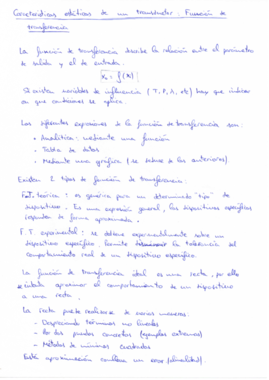 Características estáticas de un transductor: Función de
transferencia
La función de transferencia describe la relación entre el parámetro
de salida y el de entrada.
Si existen variables de influencia (T, P, A, etc) hay que indicar
en que condiciones se aplica
Las diferentes expresiones de la función de transferencia son:
• Analítica: mediante una función
• Tabla de datos
• Mediante una gráfica (se obtiene de las anteriores)
Existen 2 tipos de función de transferencia:
F.T. teórica: es genérica para un determinado "tipo" de
dispositivos. Es una expresión general, los dispositivos específicos
responden de forma aproximada.
F.T experimental: se obtiene experimentalmente sobre un
dispositivo específico, permite determinar la tolerancia del
comportamiento real de un dispositivo específico.
La función de transferencia ideal es una recta, por ello
se intenta aproximar el comportamiento de un dispositivo
a una recta.
La recta puede realizarse de varias maneras:
- Despreciando términos no lineales
- Por dos puntos concretos (ejemplos extremos)
- Métodos de mínimos cuadrados
Esta aproximación conlleva un error (linealidad).